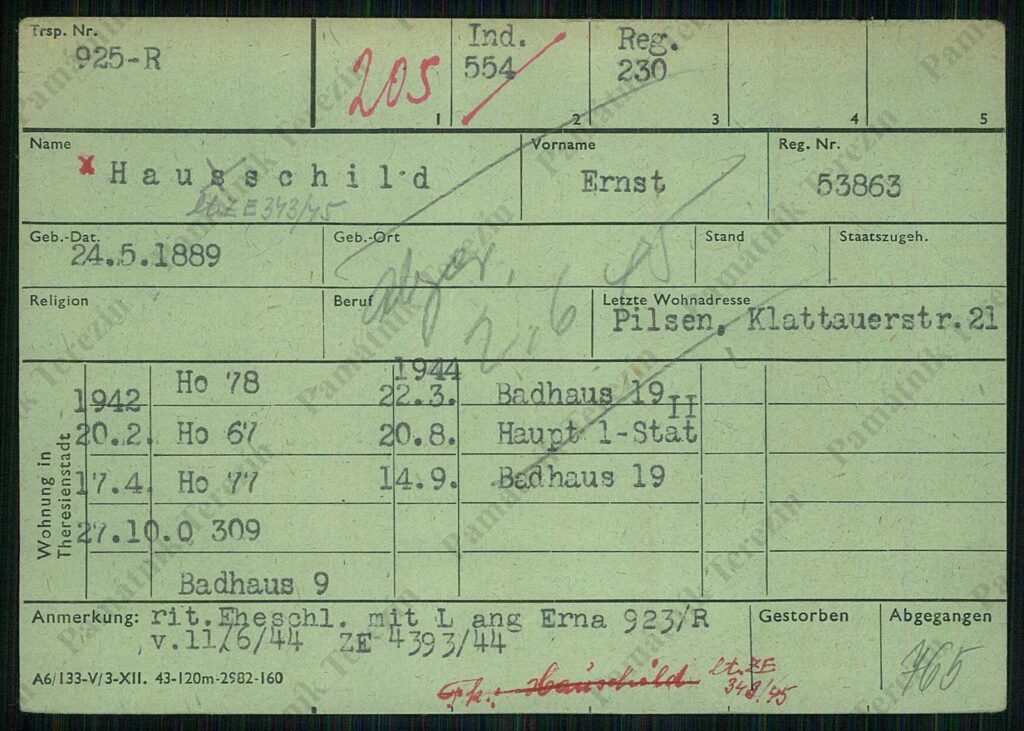 Trsp. Nr.
925-R
205
1
Ind.
554
2
Reg.
230
3
4
5
Name
x Hausschild
lt. ZE 343/45
Vorname
Ernst
Reg. Nr.
53863
Geb.-Dat.
24.5.1889
Geb.-Ort
Stand
Staatszugeh.
Religion
Beruf
2. 6 45
Letzte Wohnadresse
Pilsen, Klattauerstr.21
Wohnung in
Theresienstadt
1942 Ho 78 1944 22.3. Badhaus 19
20.2. Ho 67 20.8. Haupt 1-Stat II
17.4. Ho 77 14.9. Badhaus 19
27.10. Q 309
Badhaus 9
Anmerkung: rit.Eheschl. mit L ang Erna 923/R
v.11/6/44 ZE 4393/44
Gestorben
Abgegangen
765
A6/133-V/3-XII. 43-120m-2982-160
Hauschild lt. ZE
343/45
Památník Terezín